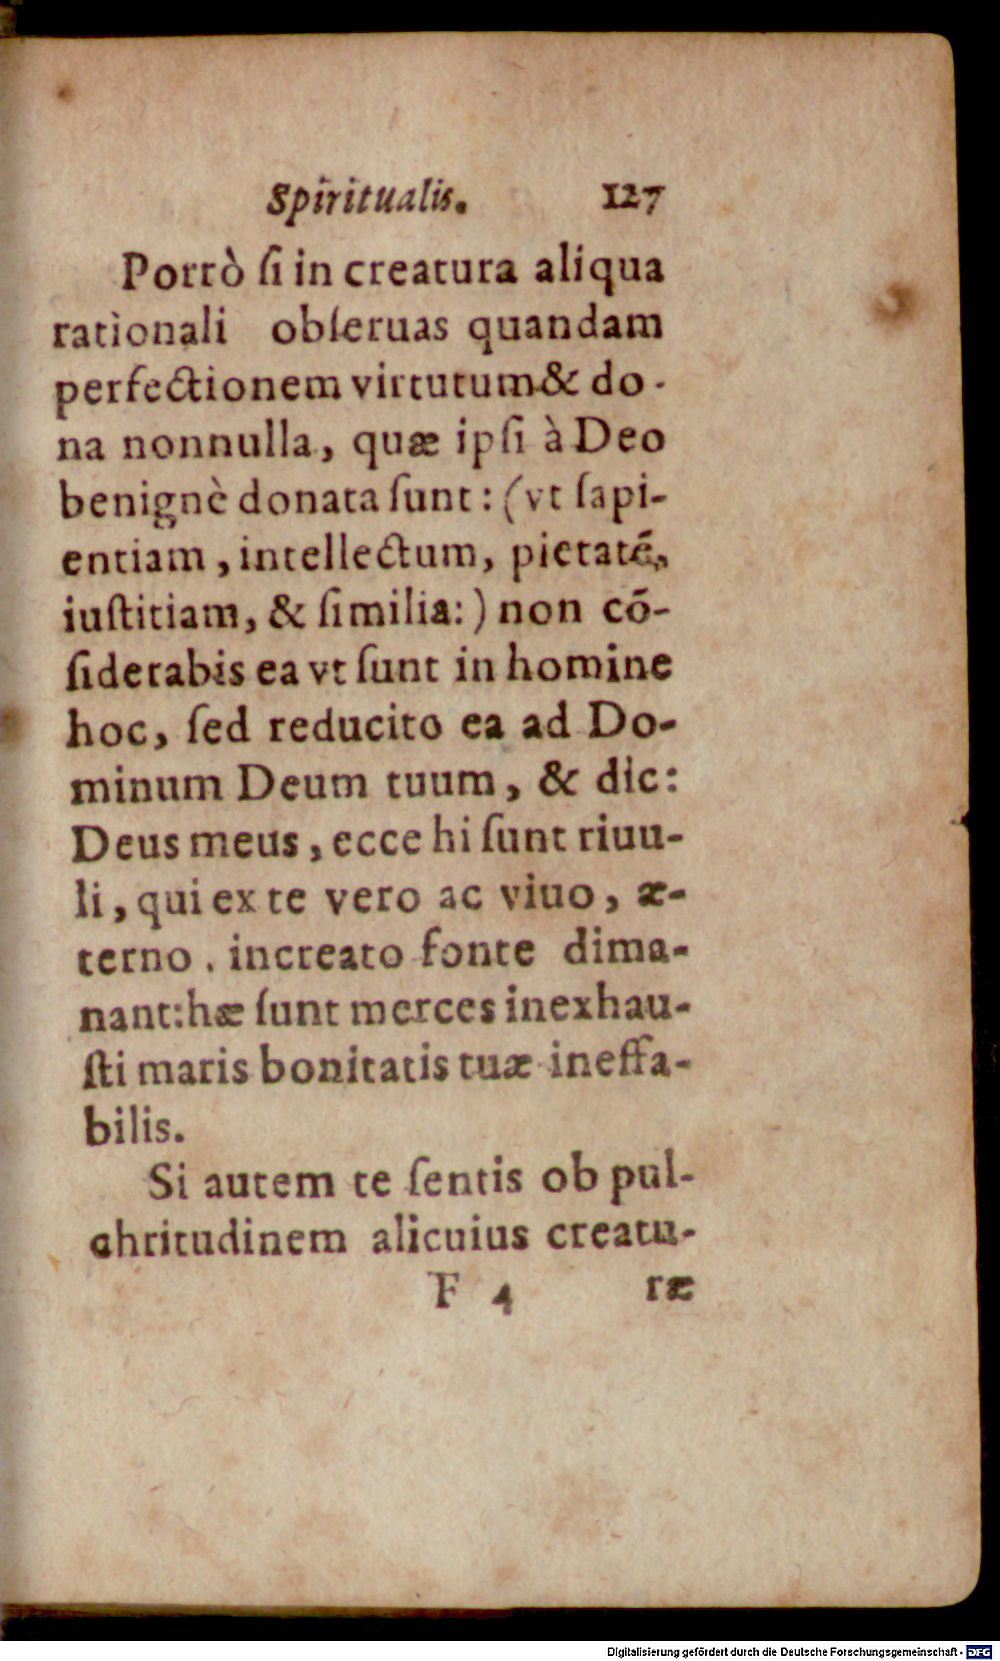 Spiritualis. 127
Porrò ſi in creatura aliqua
rationali obſeruas quandam
perfectionem virtutum & do-
na nonnulla, quæ ipſi à Deo
benignè donata ſunt: (vt ſapi-
entiam, intellectum, pietatē,
iuſtitiam, & ſimilia:) non cō-
ſiderabis ea vt ſunt in homine
hoc, ſed reducito ea ad Do-
minum Deum tuum, & dic:
Deus meus, ecce hi ſunt riuu-
li, qui ex te vero ac viuo, æ-
terno. increato fonte dima-
nant: hæ ſunt merces inexhau-
ſti maris bonitatis tuæ ineffa-
bilis.
Si autem te ſentis ob pul-
chritudinem alicuius creatu-
F 4 ræ
Digitalisierung gefördert durch die Deutsche Forschungsgemeinschaft - DFG